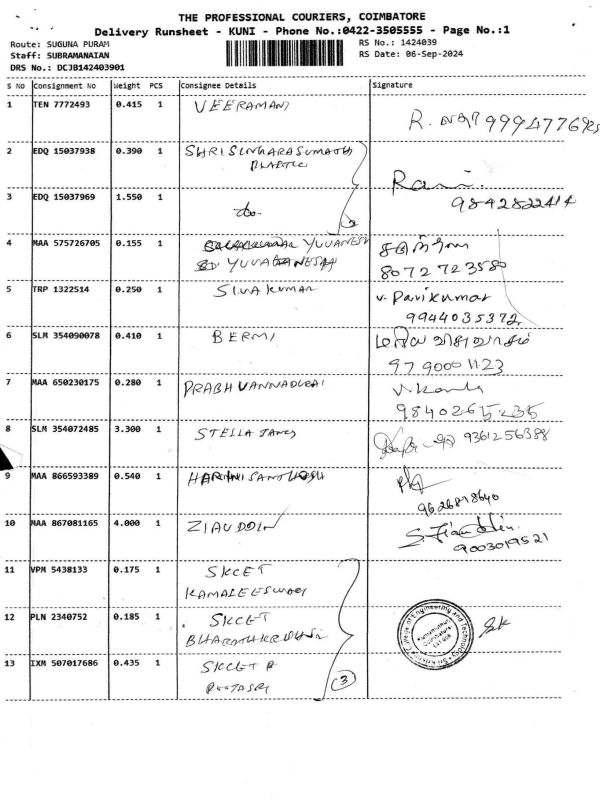 THE PROFESSIONAL COURIERS, COIMBATORE
Delivery Runsheet - KUNI - Phone No.:0422-3505555 - Page No.:1
Route: SUGUNA PURAM
RS No.: 1424039
Staff: SUBRAMANAIAN
RS Date: 06-Sep-2024
DRS No.: DCJB142403901
S No Consignment No Weight PCS Consignee Details Signature
1 TEN 7772493 0.415 1 VEERAMANI
R.
2 EDQ 15037938 0.390 1 SHRI SINGARASUMATH
PLASTIC
Rani.
3 EDQ 15037969 1.550 1 do.
9842822414
2
4 MAA 575726705 0.155 1 YUVANESH
YUVAGANESH
8072723580
5 TRP 1322514 0.250 1 SIVAKUMAR
V. Parikumar
9944035372
6 SLM 354090078 0.410 1 BERMI
9790001123
7 MAA 650230175 0.280 1 PRABHUVANNADURAI
9840265235
8 SLM 354072485 3.300 1 STELLA
9361256388
9 MAA 866593389 0.540 1 HARINISANTHOSH
9626878640
10 MAA 867081165 4.000 1 ZIAUDDIN
S. Ziauddin.
9003019521
11 VPM 5438133 0.175 1 SKCET
KAMALEESWARI
12 PLN 2340752 0.185 1 SKCET
BHARATHKRISHNA
13 IXM 507017686 0.435 1 SKCET
3
Sri Krishna College of Engineering and Technology
Kuniamuthur
Coimbatore